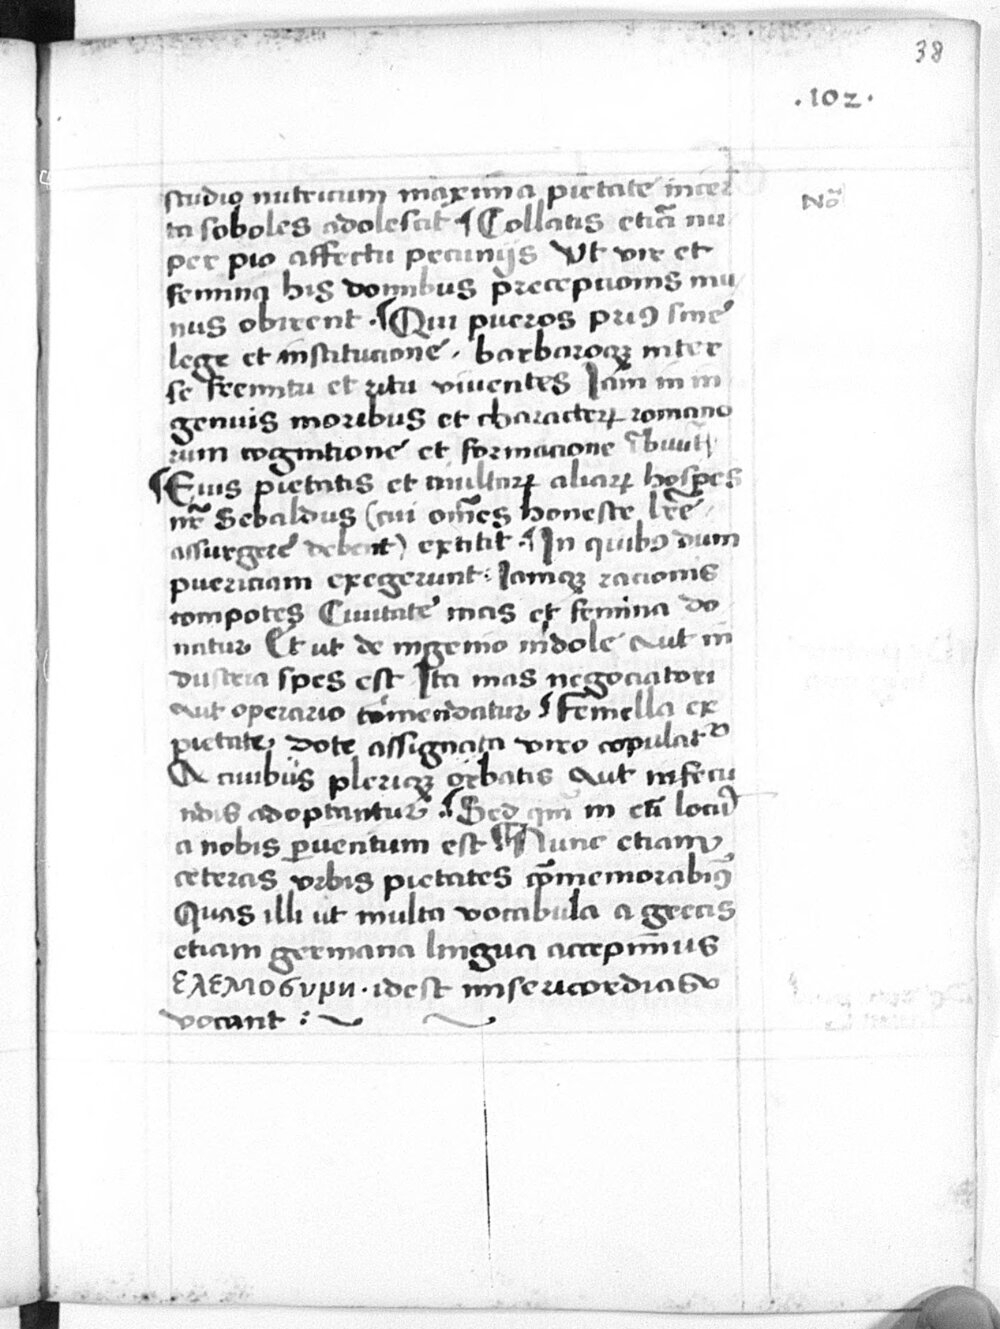 38
.102.
studio nutricum maxima pietate incer
No͠
ta soboles adolescat ¶ Collatis etiā nu
per pio affectu pecunijs Vt vir et
femina his domibus p̄receptionis mu
nus obirent . ¶ Qui pueros priꝰ sine
lege et institucione , barbaroqꝫ inter
se fremitu et ritu viuentes Iam in in
genuis moribus et characterꝝ romano
rum cognitione et formacione
¶ Eius pietatis et multarꝝ aliarꝝ hospes
nr̄ Sebaldus (cui om̄es honeste lr̄e
assurgere debent) extitit . ¶ In quibꝰ dum
puericiam exegerunt : Iamqꝫ racionis
compotes Ciuitate mas et femina do
natur Et ut de ingenio indole aut in
dustria spes est Ita mas negociatori
aut operario cōmendatur ¶ Femella ex
pietate dote assignata viro copulatur
A ciuibus pleriqꝫ orbatis aut infecu
ndis adoptantur . ¶ Sed qm̄ in eū locū
a nobis ꝑuentum est ¶ Nunc etiam
ceteras vrbis pietates cōmemorabimꝰ
Quas illi ut multa vocabula a grecis
etiam germana lingua accepimus
ελεμοσυμη . idest misericordias
vocant :~